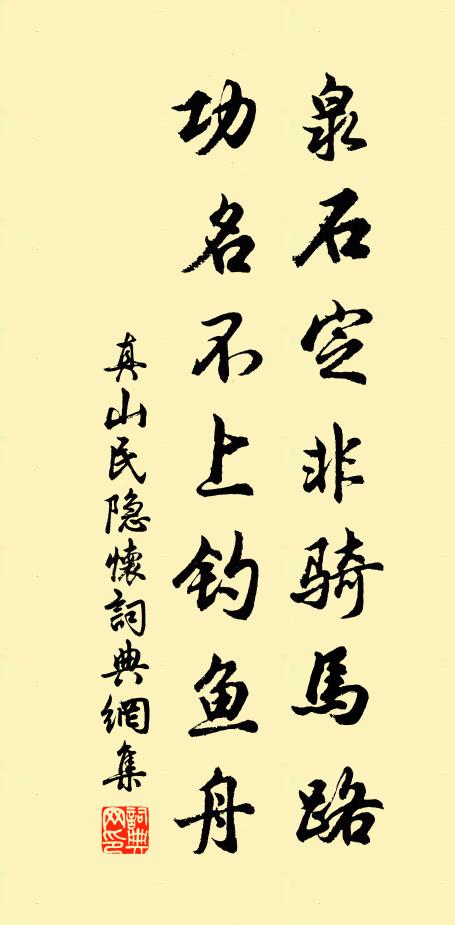 泉石定非骑馬路
功名不上钓鱼舟
真山民隐懷詞典網集
詞典網印